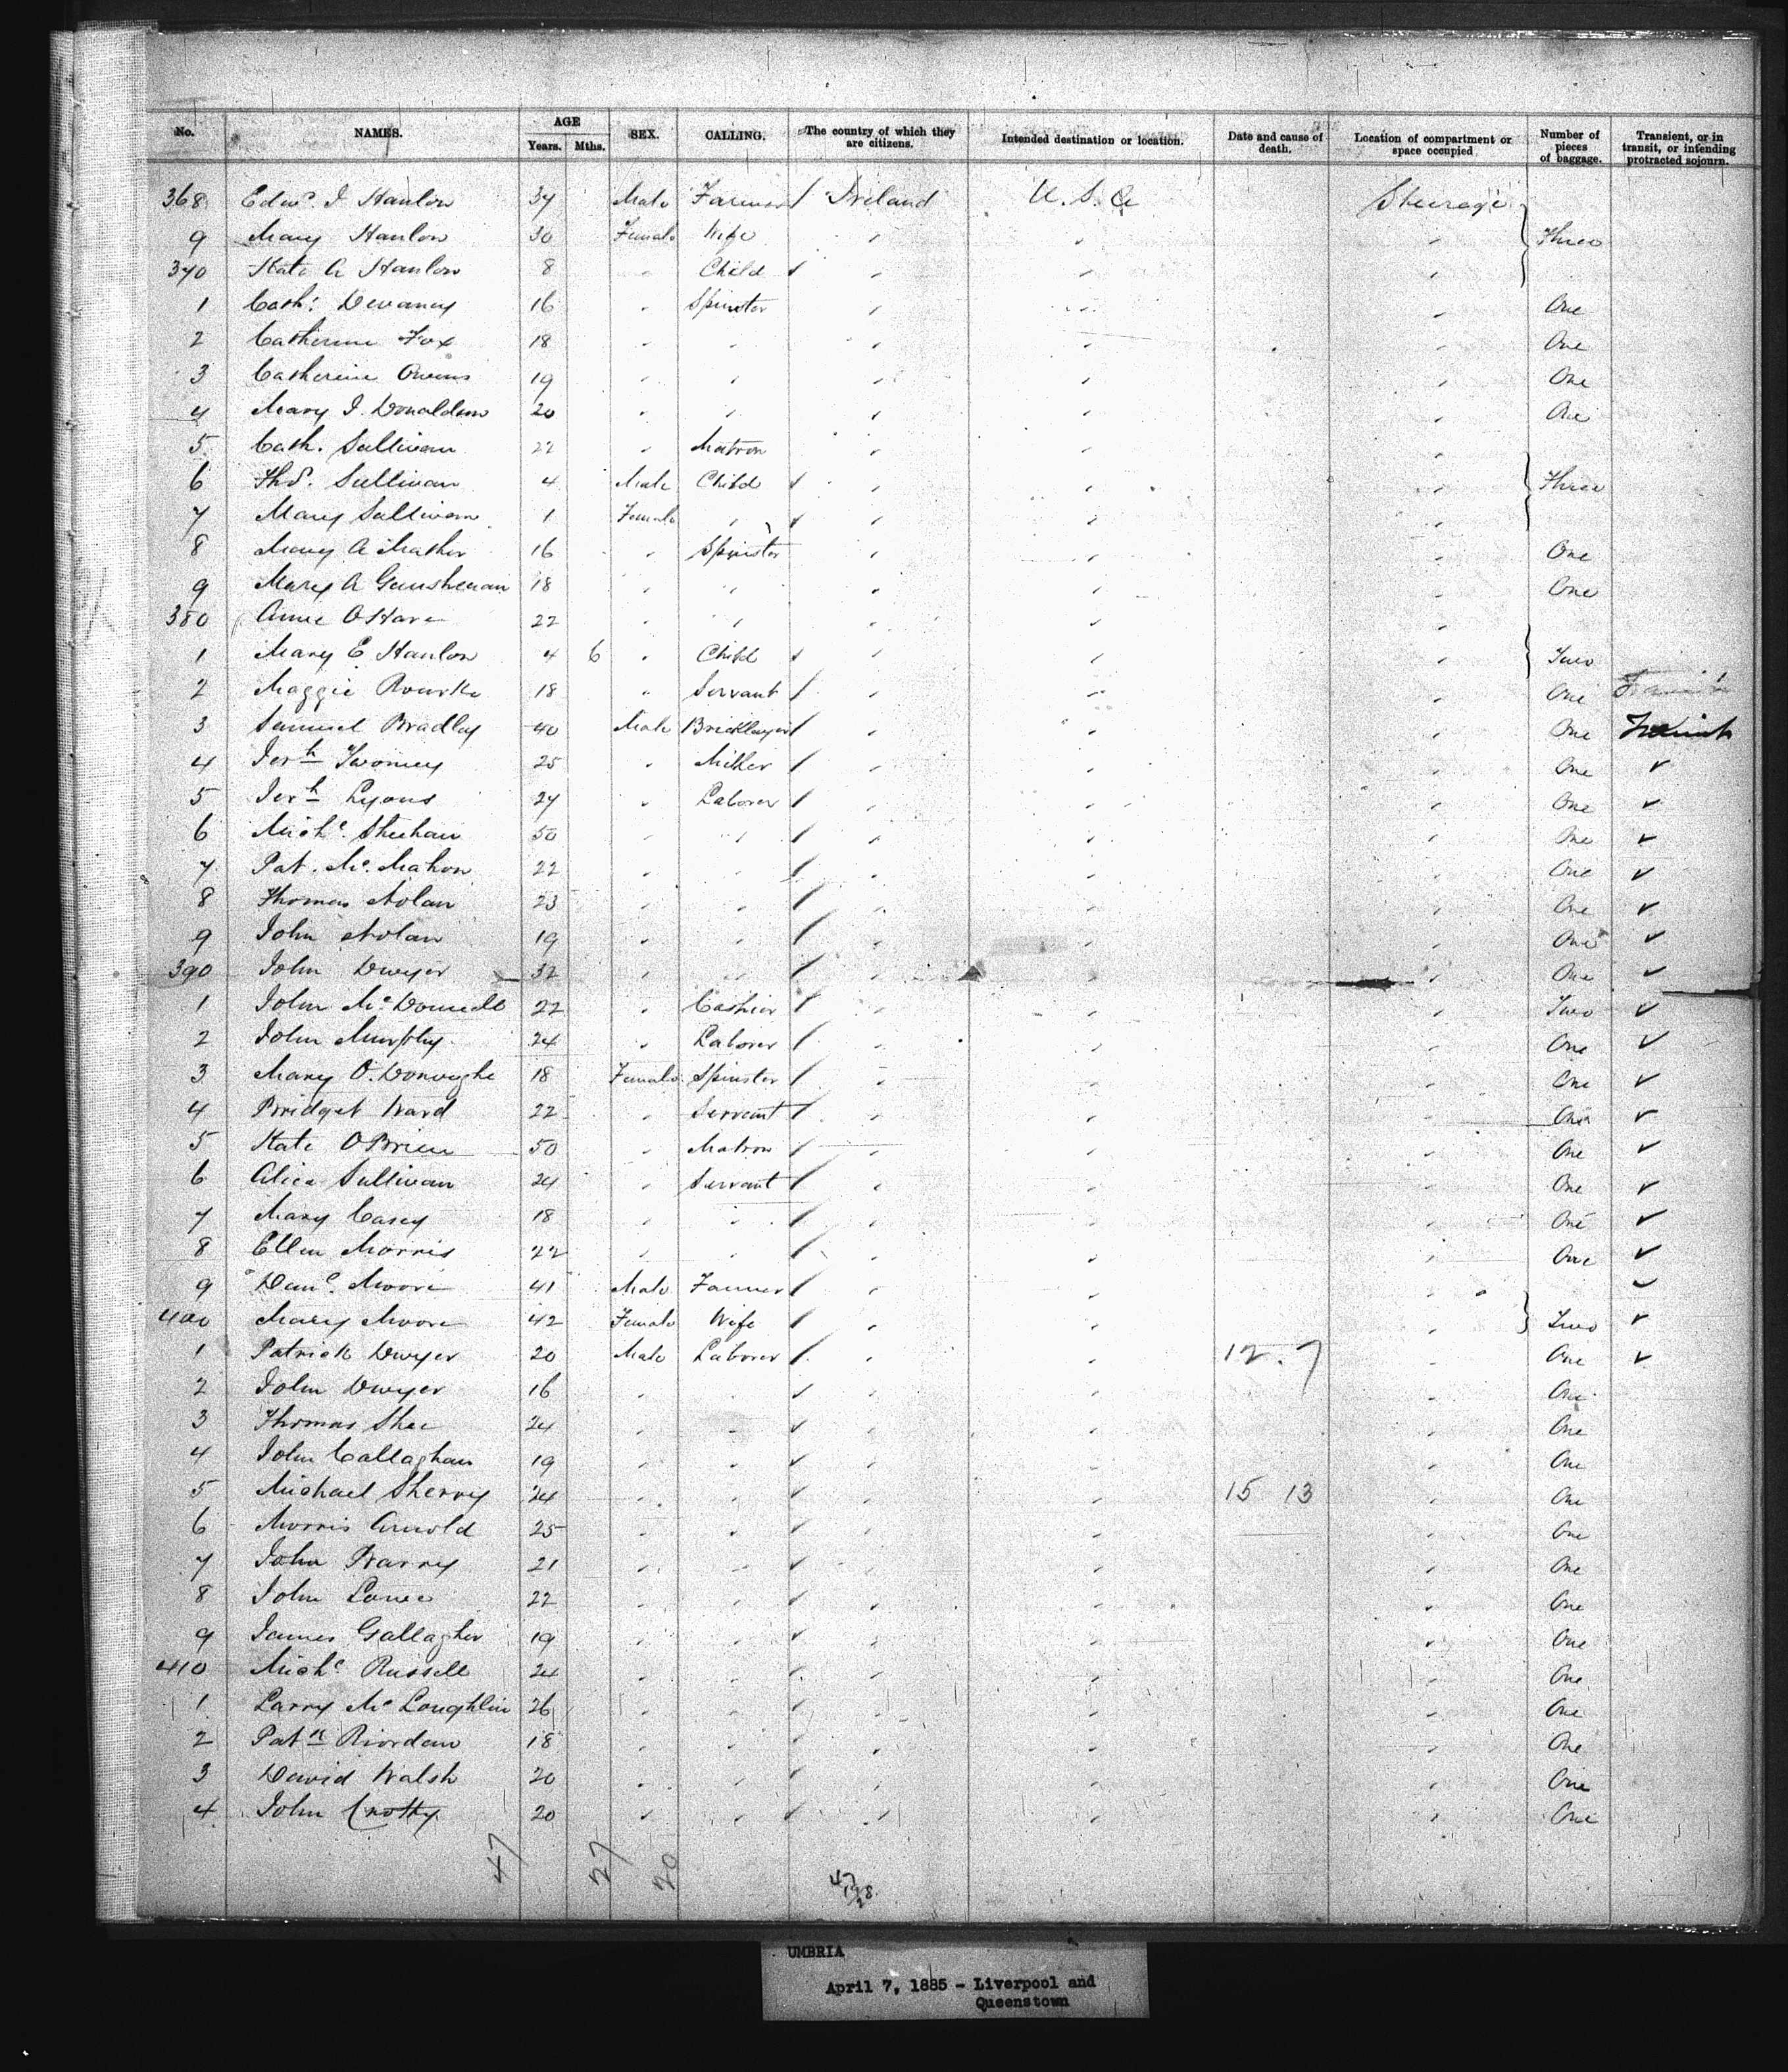 No. NAMES. AGE Years. Mths. SEX. CALLING. The country of which they are citizens. Intended destination or location. Date and cause of death. Location of compartment or space occupied Number of pieces of baggage. Transient, or in transit, or intending protracted sojourn.
368 Edwd. J Hanlon 34 Male Farmer Ireland U.S.A Steerage
9 Mary Hanlon 30 Female Wife " " " Three
370 Kate A Hanlon 8 " Child " " "
1 Cath: Devaney 16 " Spinster " " " One
2 Catherine Fox 18 " " " " " One
3 Catherine Owens 19 " " " " " One
4 Mary J. Donaldson 20 " " " " " One
5 Cath. Sullivan 22 " Matron " " "
6 Thos. Sullivan 4 Male Child " " " Three
7 Mary Sullivan 1 Female " " " "
8 Mary A Maher 16 " Spinster " " " One
9 Mary A 18 " " " " " One
380 Annie O'Hare 22 " " " " "
1 Mary E Hanlon 4 6 " Child " " " Two
2 Maggie Rourke 18 " Servant " " " One
3 Samuel Bradley 40 Male Bricklayer " " " One Transit
4 Jerh Twomey 25 " Miller " " " One ✓
5 Jerh Lyons 24 " Laborer " " " One ✓
6 Michl. Sheehan 50 " " " " " One ✓
7 Pat. Mc.Mahon 22 " " " " " One ✓
8 Thomas Nolan 23 " " " " " One ✓
9 John Nolan 19 " " " " " One ✓
390 John Dwyer 32 " " " " " One ✓
1 John McDonnell 22 " Cashier " " " Two ✓
2 John Murphy 24 " Laborer " " " One ✓
3 Mary O.Donoughe 18 Female Spinster " " " One ✓
4 Bridget Ward 22 " Servant " " " One ✓
5 Kate OBrien 50 " Matron " " " One ✓
6 Alice Sullivan 24 " Servant " " " One ✓
7 Mary Casey 18 " " " " " One ✓
8 Ellen Morris 22 " " " " " One ✓
9 Danl. Moore 41 Male Farmer " " ✓
400 Mary Moore 42 Female Wife " " " Two ✓
1 Patrick Dwyer 20 Male Laborer " " 12.7 " One ✓
2 John Dwyer 16 " " " " " One
3 Thomas Shee 24 " " " " " One
4 John Callaghan 19 " " " " " One
5 Michael Sherry 24 " " " " 15 13 " One
6 Morris Arnold 25 " " " " " One
7 John Barry 21 " " " " " One
8 John 22 " " " " " One
9 James Gallagher 19 " " " " " One
410 Michl Russell 24 " " " " " One
1 Larry McLoughlin 26 " " " " " One
2 Patk Riordan 18 " " " " " One
3 David Walsh 20 " " " " " One
4 John Crotty 20 " " " " " One
47 27 20 47
UMBRIA
April 7, 1885 - Liverpool and
Queenstown